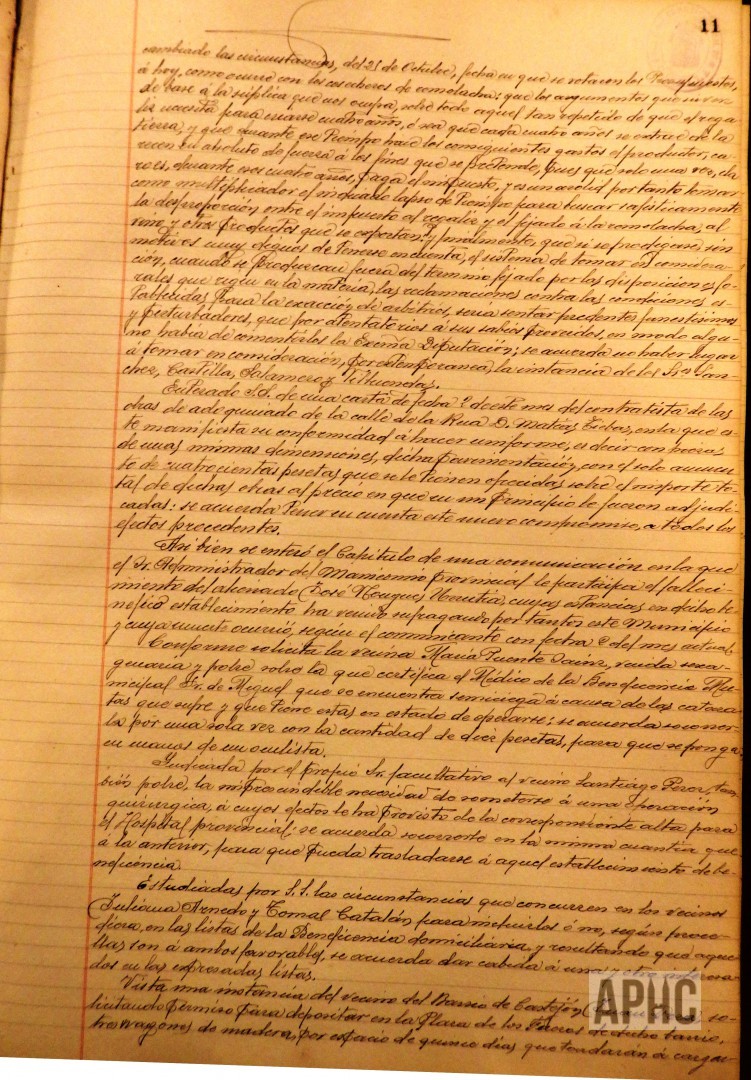 11
cambiado las circunstancias, del 21 de Octubre, fecha en que se votaron los Presupuestos,
á hoy, como ocurre con los cosecheros de remolacha: que los argumentos que sirven
de base a la súplica que nos ocupa, sobre todo aquel tan repetido de que el rega-
liz necesita para criarse cuatro años, ó sea que cada cuatro años se extrae de la
tierra, y que durante ese tiempo hace los consiguientes gastos el productor, ca-
recen en absoluto de fuerza á los fines que se pretende, pues que solo una vez, cla-
ro es, durante esos cuatro años, paga el impuesto, y es un por tanto tomar
como multiplicador el indicado lapso de tiempo para buscar sofisticamente
la desproporción entre el impuesto al regaliz y el fijado á la remolacha, al
vino y otros productos que se exportan; y finalmente, que si se prodigase, sin
motivos muy dignos de tenerse en cuenta, el sistema de tomar en considera-
ción, cuando se produzcan fuera del termino fijado por las disposiciones le-
gales que rigen en la materia, las reclamaciones contra las condiciones es-
tablecidas para la exacción de arbitrios, seria sentar precedentes funestisimos
y perturbadores, que por atentatorios á sus sabios proveidos, en modo algu-
no habia de consentirlos la Excma Diputación; se acuerda no haber lugar
á tomar en consideración, por extemporanea, la instancia de los Srs San-
chez, Castilla, Salamero y
Enterado S.S. de una carta de fecha 2 de este mes del contratista de las
obras de adoquinado de la calle de la Rua D. Matias en la que es-
te manifiesta su conformidad á hacer uniforme, es decir con piezas
de unas mismas dimensiones, dicha pavimentación, con el solo aumen-
to de cuatrocientas pesetas que se le tienen ofrecidas sobre el importe to-
tal de dichas obras al precio en que en un principio le fueron adjudi-
cadas: se acuerda tener en cuenta este nuevo compromiso, a todos los
efectos procedentes.
Asi bien se enteró el Capitulo de una comunicación en la que
el Sr. Administrador del Manicomio provincial le participa el falleci-
miento del alienado José Urrutia, cuyas estancias en dicho be-
néfico establecimiento ha venido sufragando por tantos este Municipio
y cuya muerte ocurrió, según el comunicante con fecha 2 del mes actual.
Conforme solicita la vecina Maria Puente Sainz, viuda sexa-
genaria y pobre sobre la que certifica el Médico de la Beneficencia Mu-
nicipal Sr. de Miguel que se encuentra semiciega á causa de las catara-
tas que sufre y que tiene estas en estado de operarse: se acuerda socorrer-
la por una sola vez con la cantidad de diez pesetas, para que se ponga
en manos de un oculista.
Indicada por el propio Sr. facultativo al vecino Santiago Perez, tam-
bién pobre, la imprescindible necesidad de someterse á una operación
quirurgica, á cuyos efectos le ha provisto de la correspondiente alta para
el Hospital provincial: se acuerda socorrerle en la misma cuantia que
á la anterior, para que pueda trasladarse á aquel establecimiento de be-
neficencia.
Estudiadas por S.S. las circunstancias que concurren en los vecinos
Juliana Arnedo y Tomas Catalán para incluirlos ó no, según proce-
diera, en las listas de la Beneficencia domiciliaria, y resultando que aque-
llas son á ambos favorables, se acuerda dar cabida á una y otro interesa-
dos en las expresadas listas.
Vista una instancia del vecino del Barrio de Castejón so-
licitando permiso para depositar en la Plaza de los Fueros de dicho barrio,
tres wagones de madera, por espacio de quince dias que tardarán á cargar-
APHC